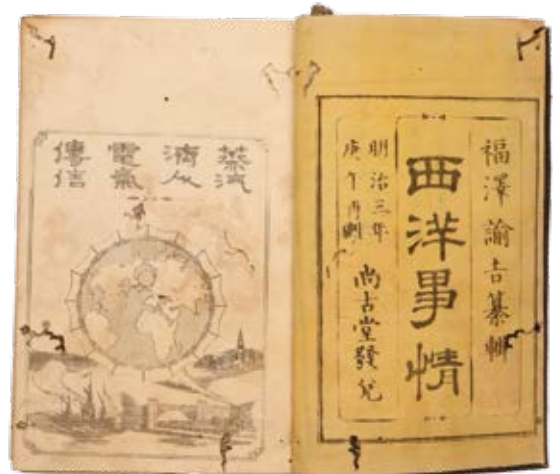 福澤諭吉纂輯
西洋事情
明治三年
庚午再刻
尚古堂發兌
蒸汽
濟人
電氣
傳信